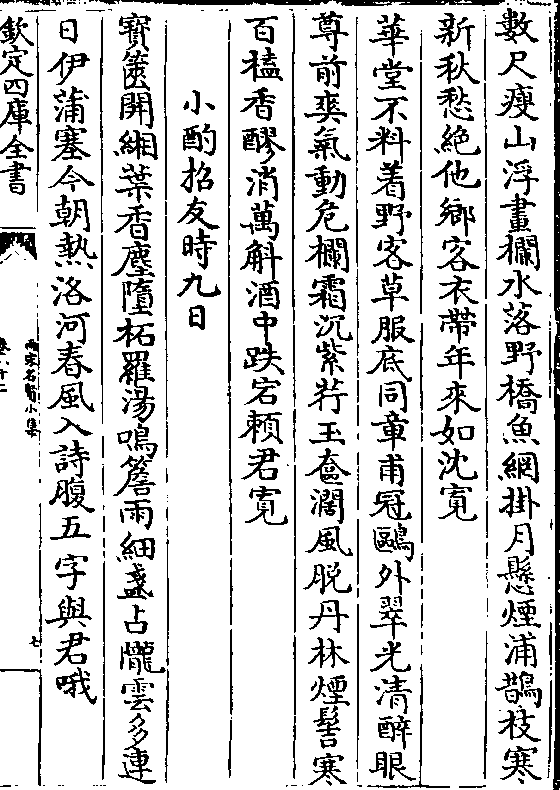 數尺瘦山浮畫欄水落野橋魚網掛月懸煙浦鵲枝寒
新秋愁絶他鄉客衣帶年來如沈寛
華堂不料着野客草服底同章甫冠鷗外翠光清醉眼
尊前爽氣動危欄霜沉紫荇玉奩濶風脱丹林煙髻寒
百榼香醪消萬斛酒中跌宕頼君寛
小酌招友時九日
寳篋開緗葉香塵隨柘羅湯鳴簷雨細盞占隴雲多連
日伊蒲塞今朝熱洛河春風入詩腹五字與君哦
欽定四庫全書
兩宋名賢小集
七